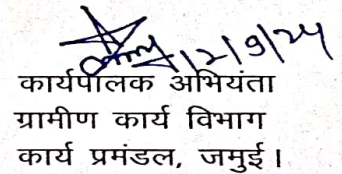 12/9/24
कार्यपालक अभियंता
ग्रामीण कार्य विभाग
कार्य प्रमंडल, जमुई।